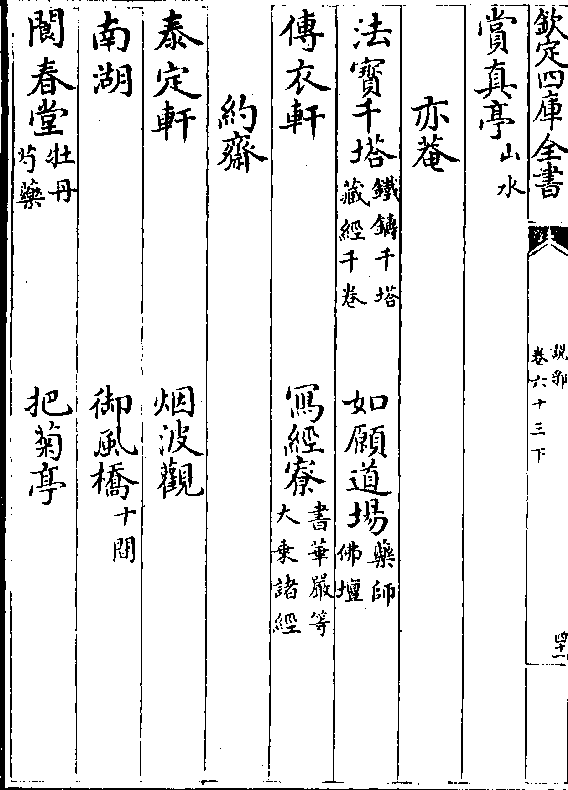 欽定四庫全書
說郛
卷六十三下
四十一
賞真亭山水
亦菴
法寶千塔鐵鑄千塔藏經千卷 如願道場藥師佛壇
傳衣軒 寫經寮書華嚴等大乗諸經
約齋
泰定軒 烟波觀
南湖 御風橋十間
閬春堂牡丹芍藥 把菊亭